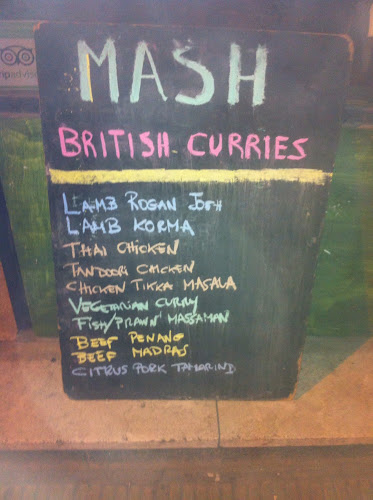 tripadvisor
MASH
BRITISH CURRIES
LAMB ROGAN JOSH
LAMB KORMA
THAI CHICKEN
TANDOORI CHICKEN
CHICKEN TIKKA MASALA
VEGETARIAN CURRY
FISH/PRAWN MASSAMAN
BEEF PENANG
BEEF MADRAS
CITRUS PORK TAMARIND